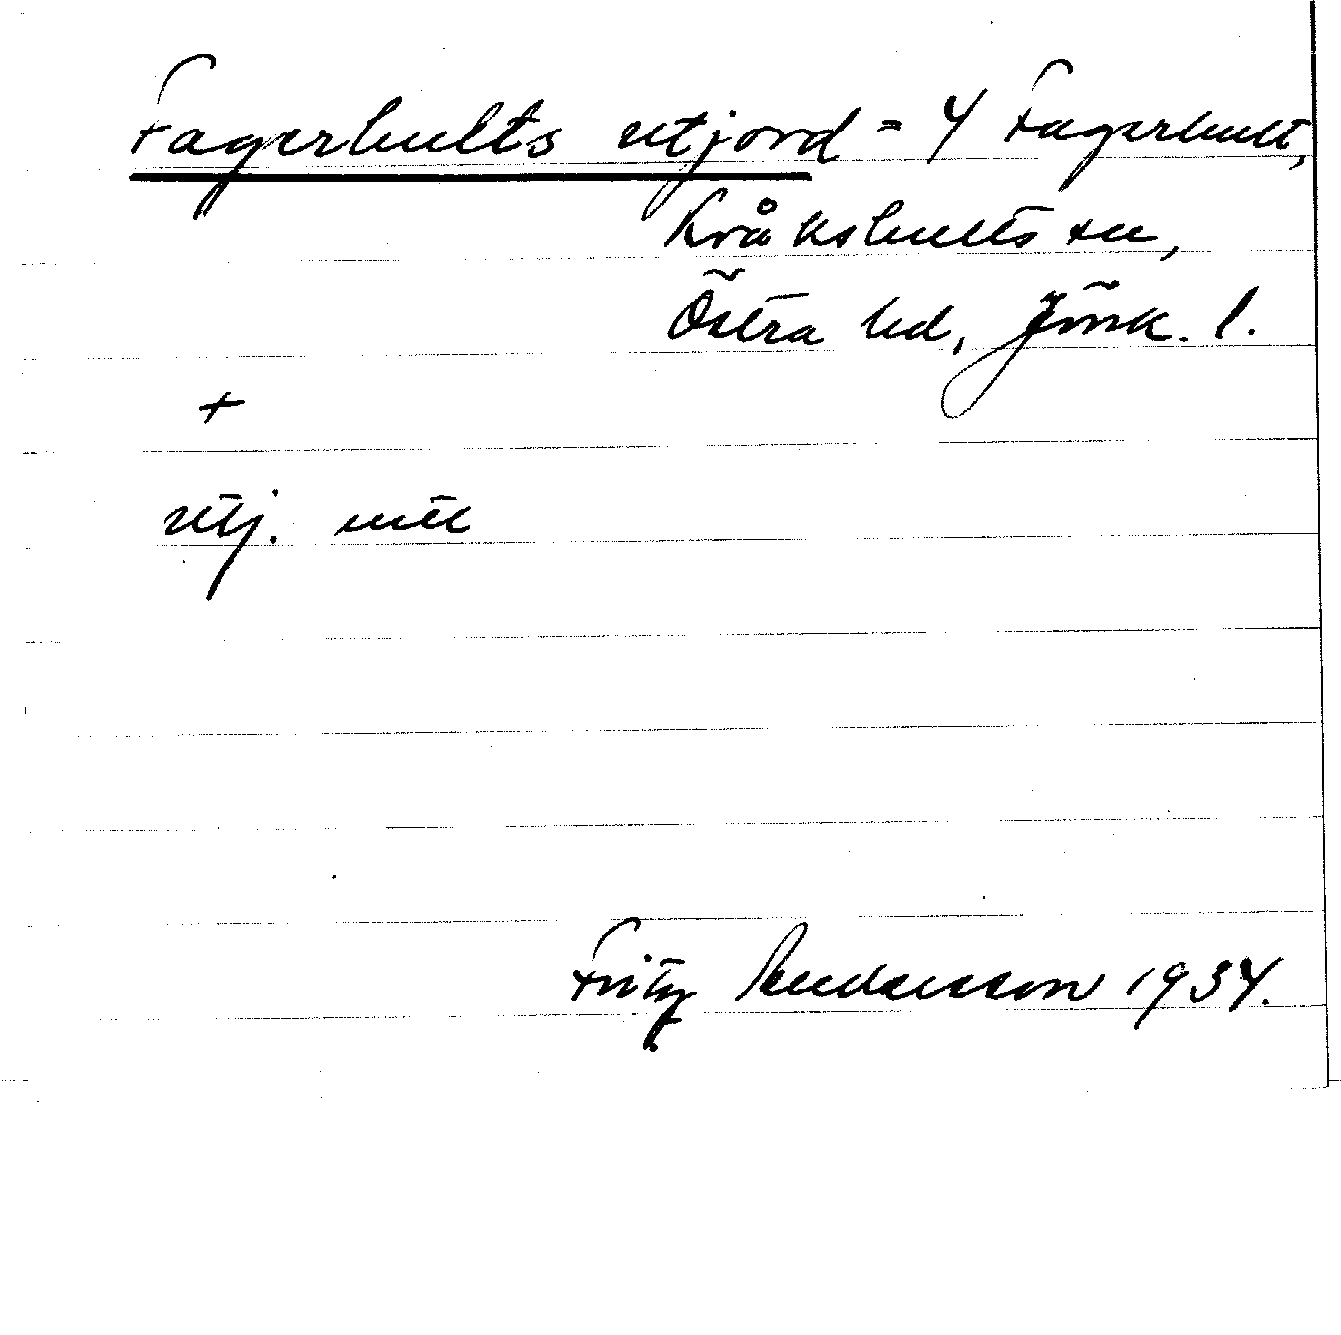 Fagerhults utjord = Y Fagerhult,
Kråkshults sn,
Östra hd, Jönk. l.
+
utj. mtl
Fritz Andersson 1934.